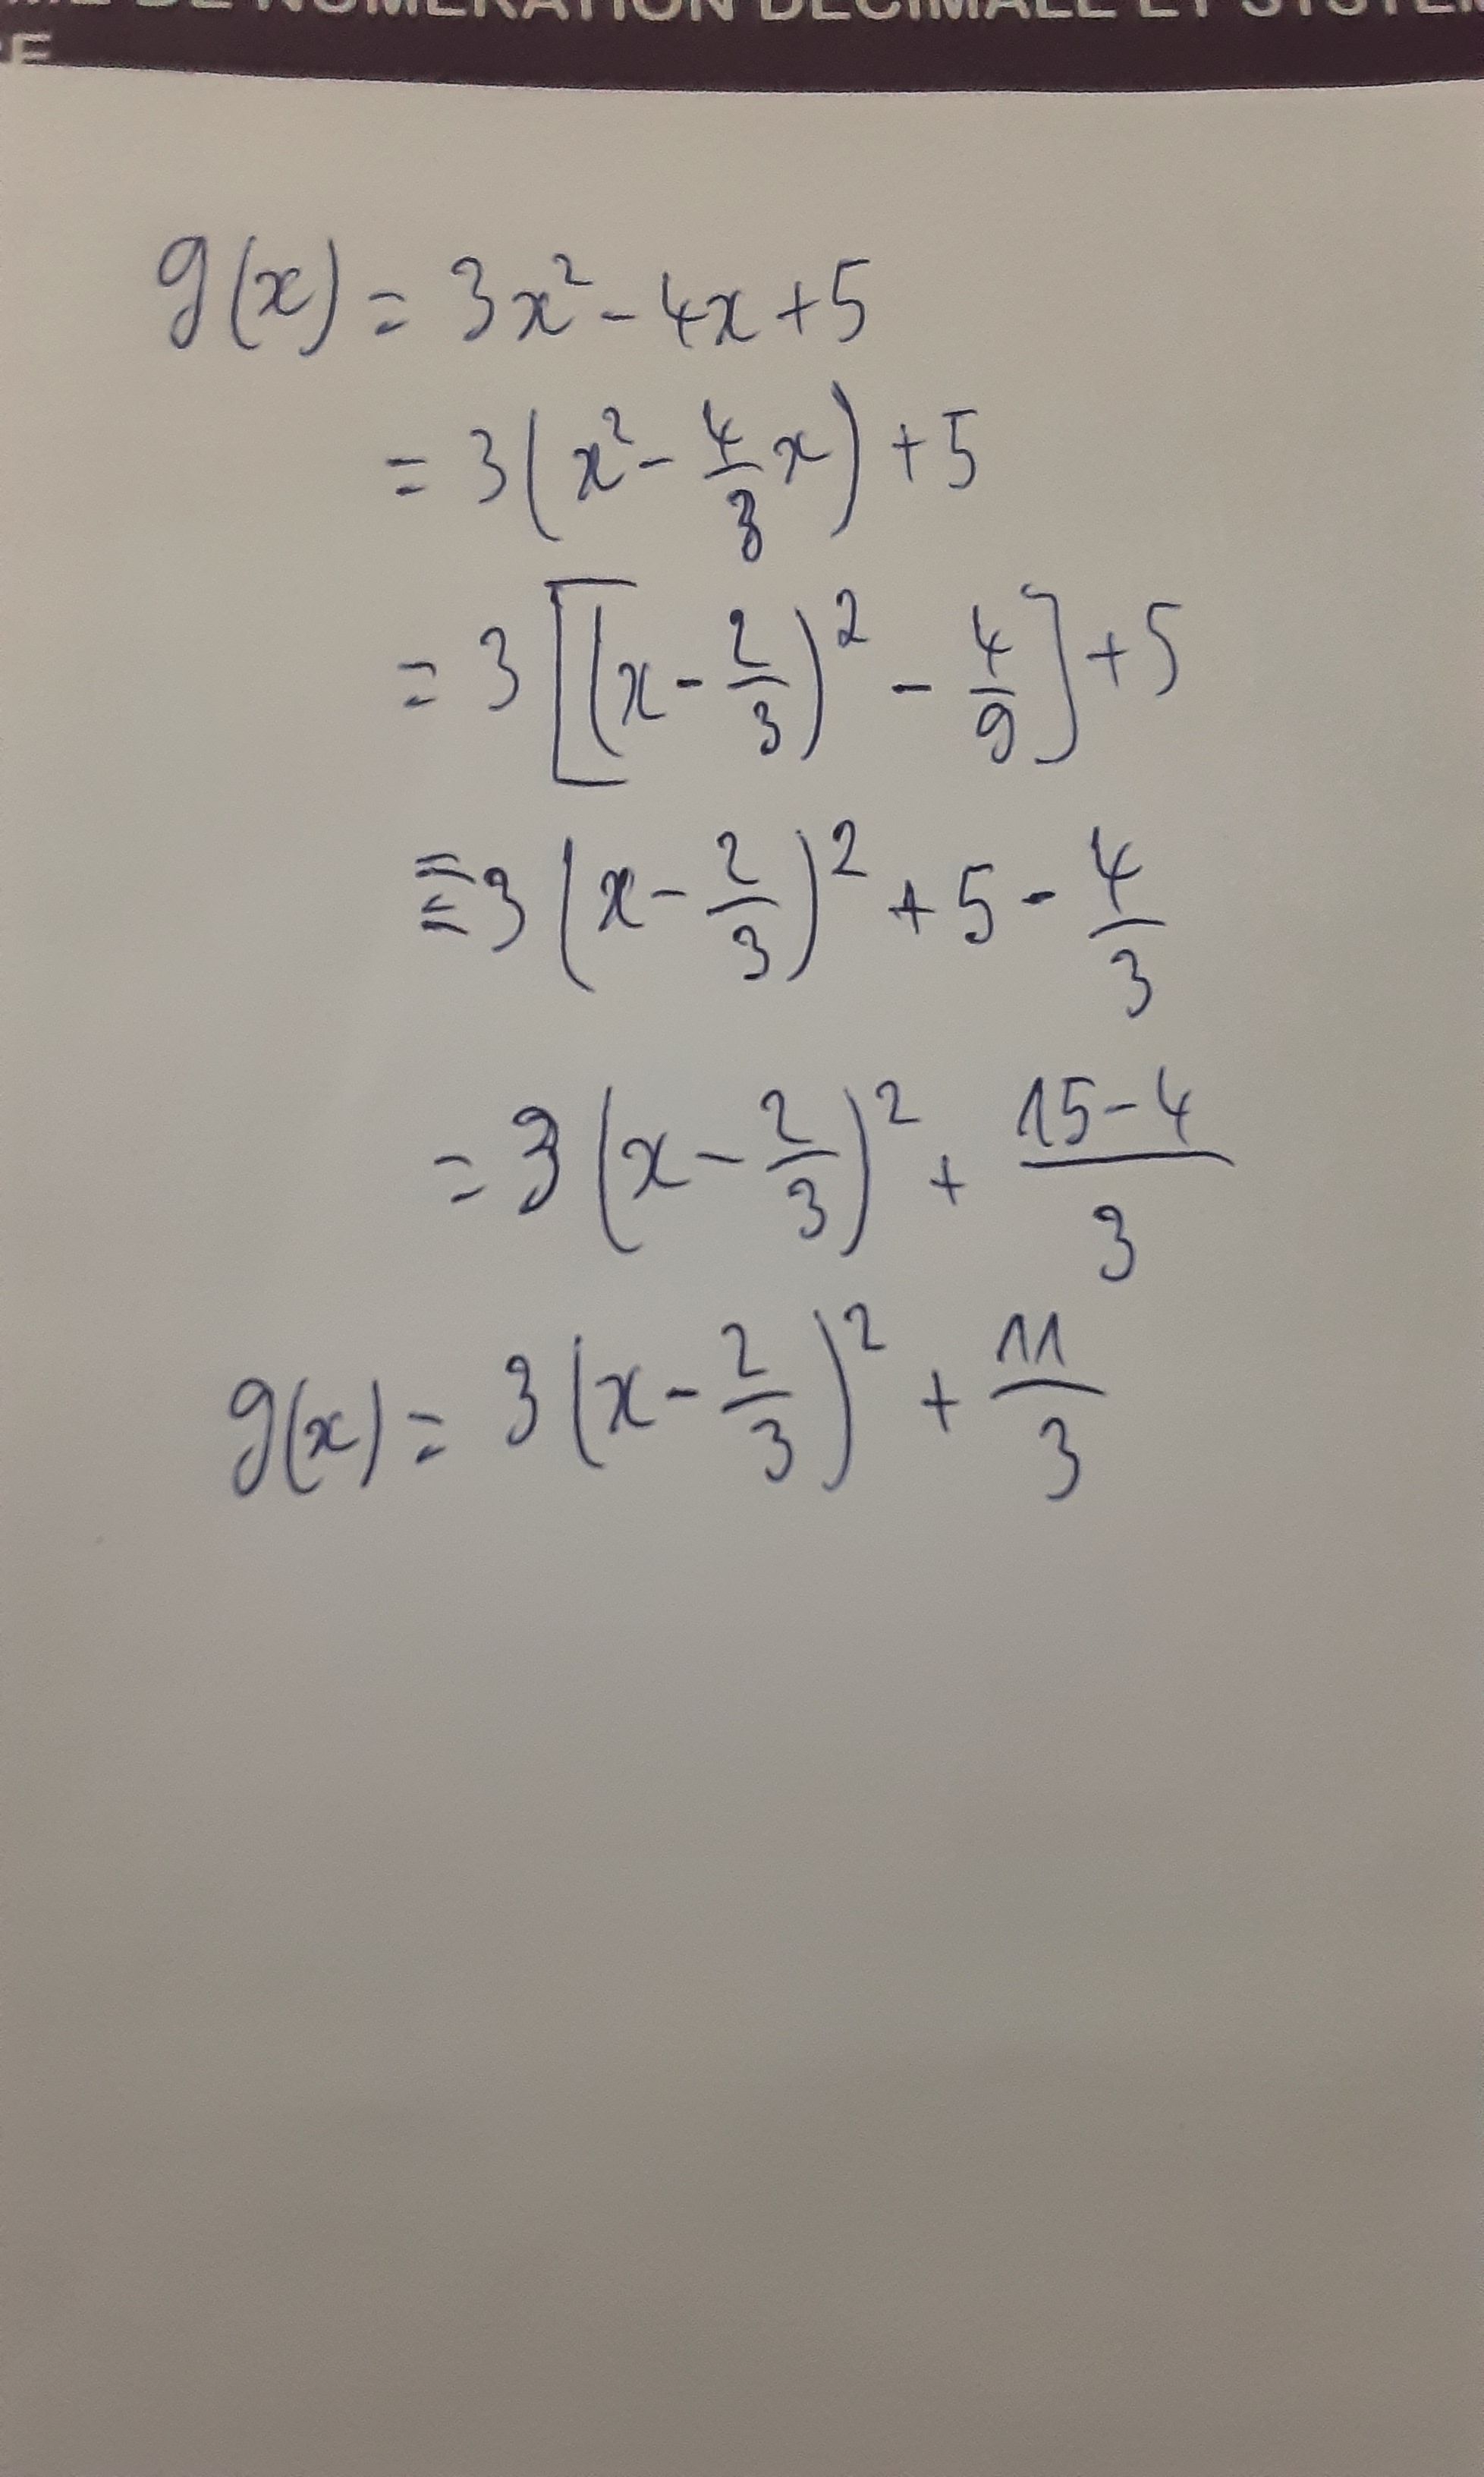 DE NUMÉRATION DÉCIMALE ET
g(x) = 3x² - 4x + 5
= 3(x² - 4/3 x) + 5
= 3[(x - 2/3)² - 4/9] + 5
= 3(x - 2/3)² + 5 - 4/3
= 3(x - 2/3)² + (15-4)/3
g(x) = 3(x - 2/3)² + 11/3